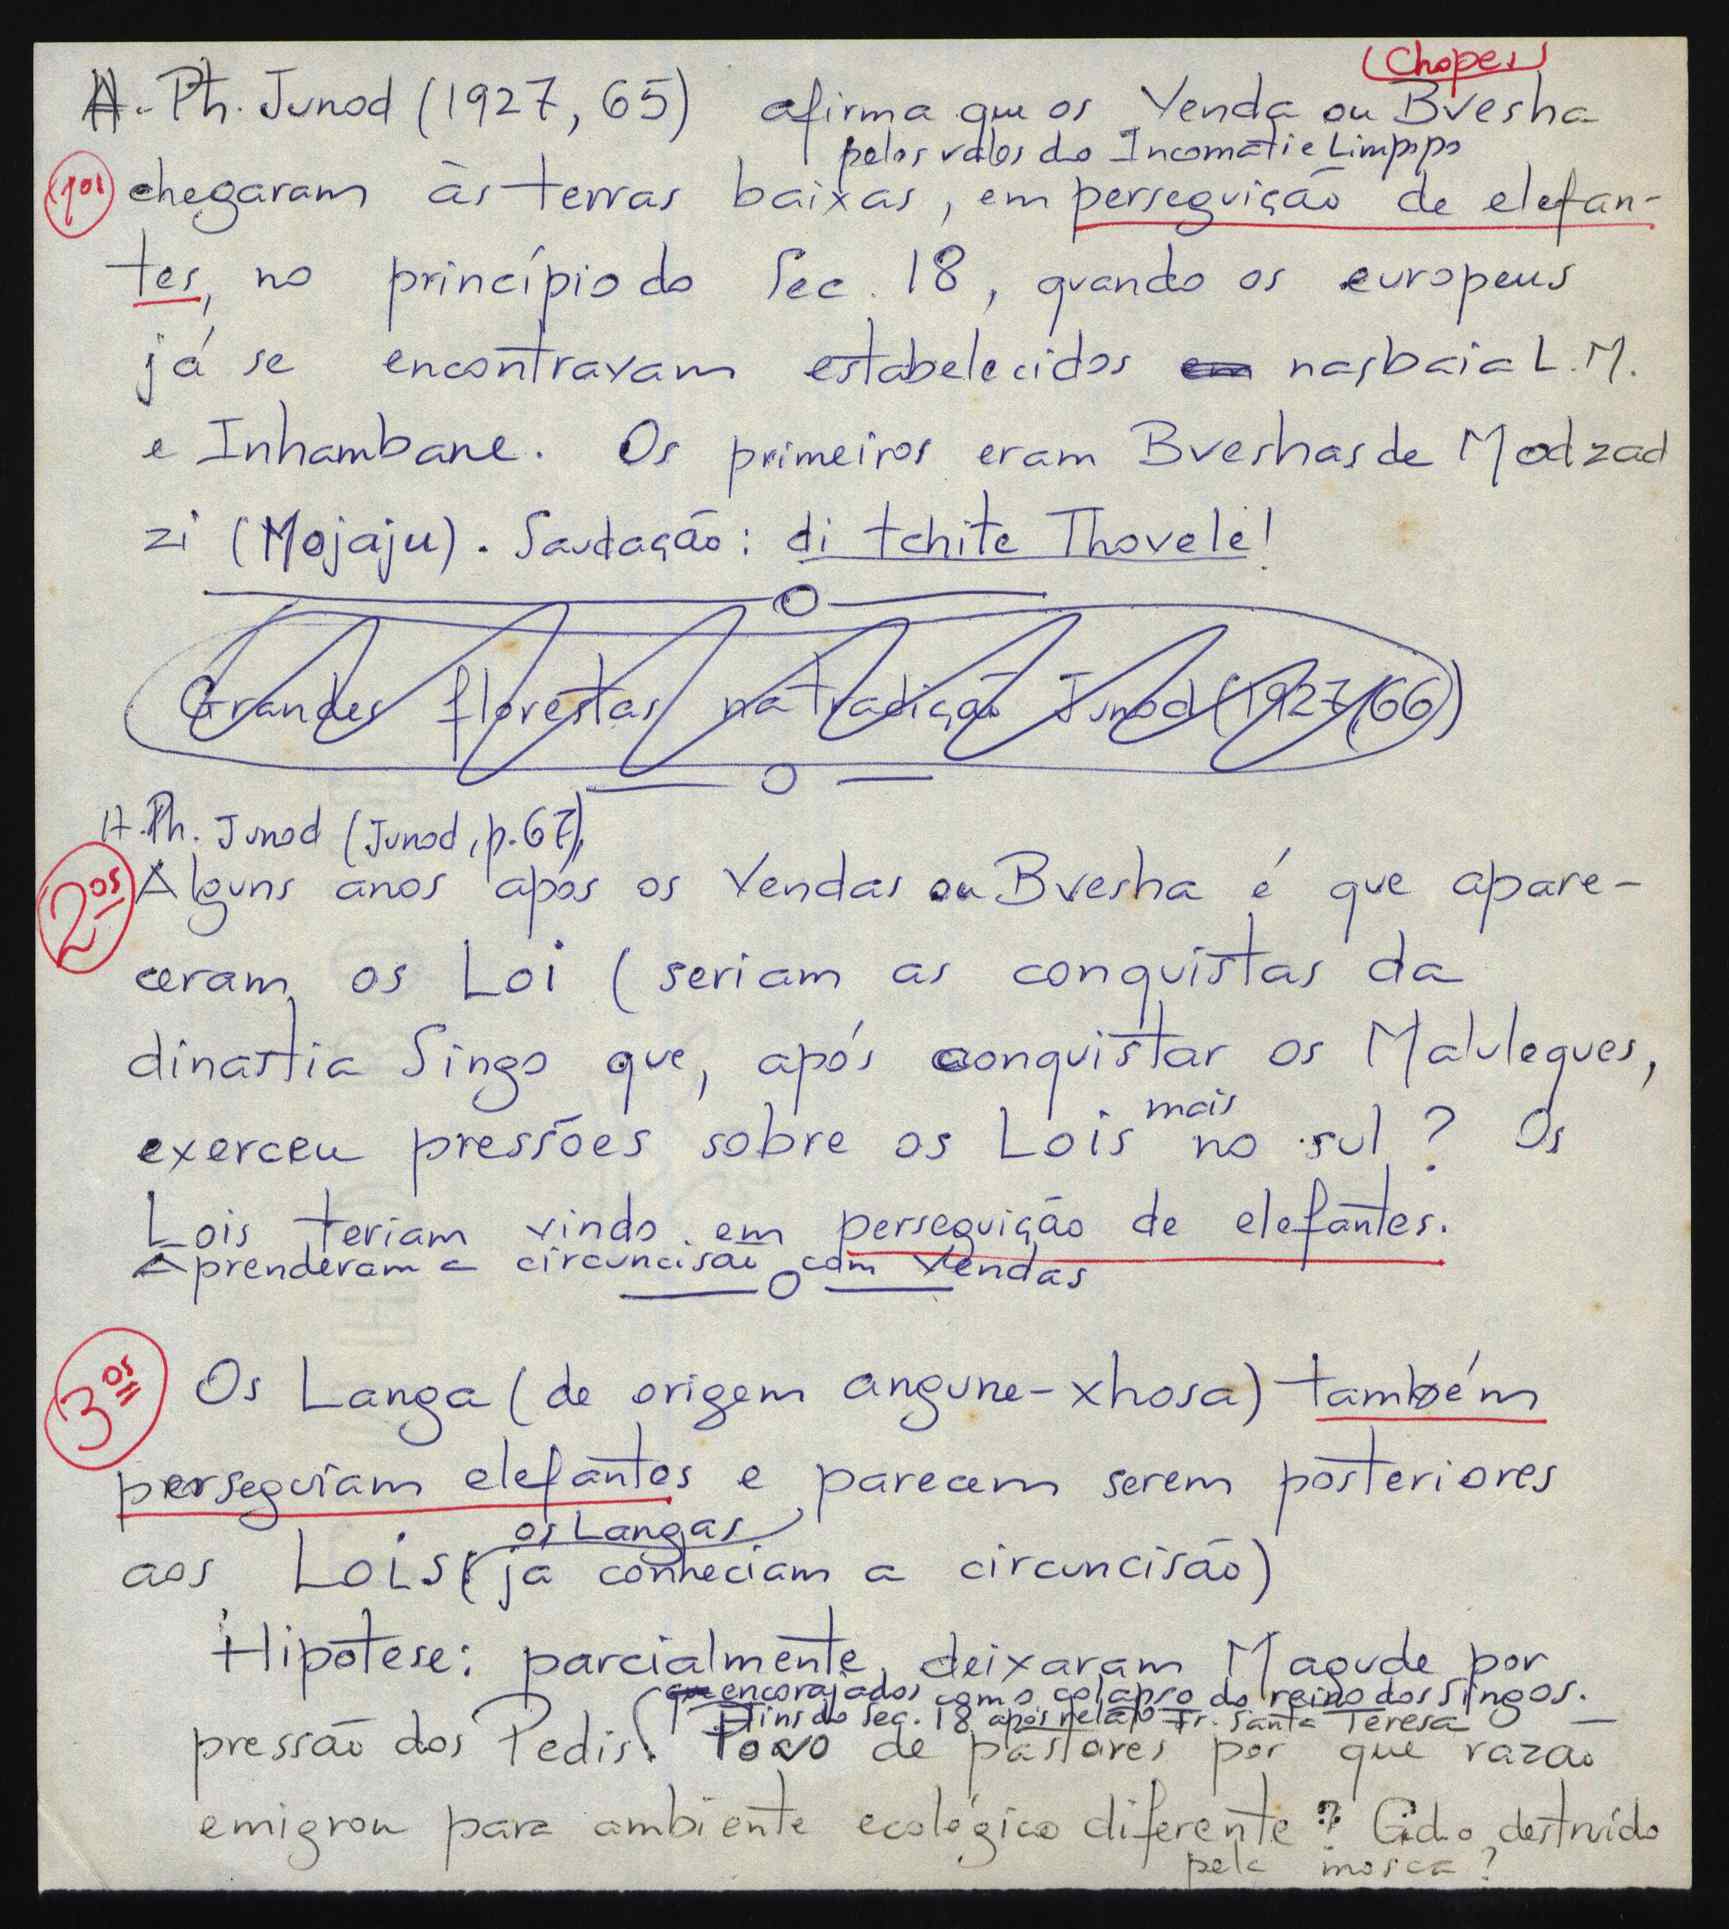 (Chopes)
H. Ph. Junod (1927, 65) afirma que os Venda ou Bvesha
pelos vales do Incomati e Limpopo
1os chegaram às terras baixas, em perseguição de elefan-
tes, no princípio do Sec. 18, quando os europeus
já se encontravam estabelecidos em nas baia L.M.
e Inhambane. Os primeiros eram Bveshas de Modzad
zi (Mojaju). Saudação: di tchite Thovele!
Grandes florestas na tradição Junod (1927, 66)
H. Ph. Junod (Junod, p. 67),
2os Alguns anos após os Vendas ou Bvesha é que apare-
ceram os Loi (seriam as conquistas da
dinastia Singo que, após conquistar os Maluleques,
mais
exerceu pressões sobre os Lois no sul? Os
Lois teriam vindo em perseguição de elefantes.
Aprenderam a circuncisão com Vendas
3os Os Langa (de origem angune-xhosa) também
perseguiam elefantes e parecem serem posteriores
os Langas
aos Lois (já conheciam a circuncisão)
Hipótese: parcialmente, deixaram Magude por
encorajados com o colapso do reino dos Singos.
Fins do Sec. 18 após relato Fr. Santa Teresa
pressão dos Pedis. Povo de pastores por que razão
emigrou para ambiente ecológico diferente? Gado destruído
pela mosca?